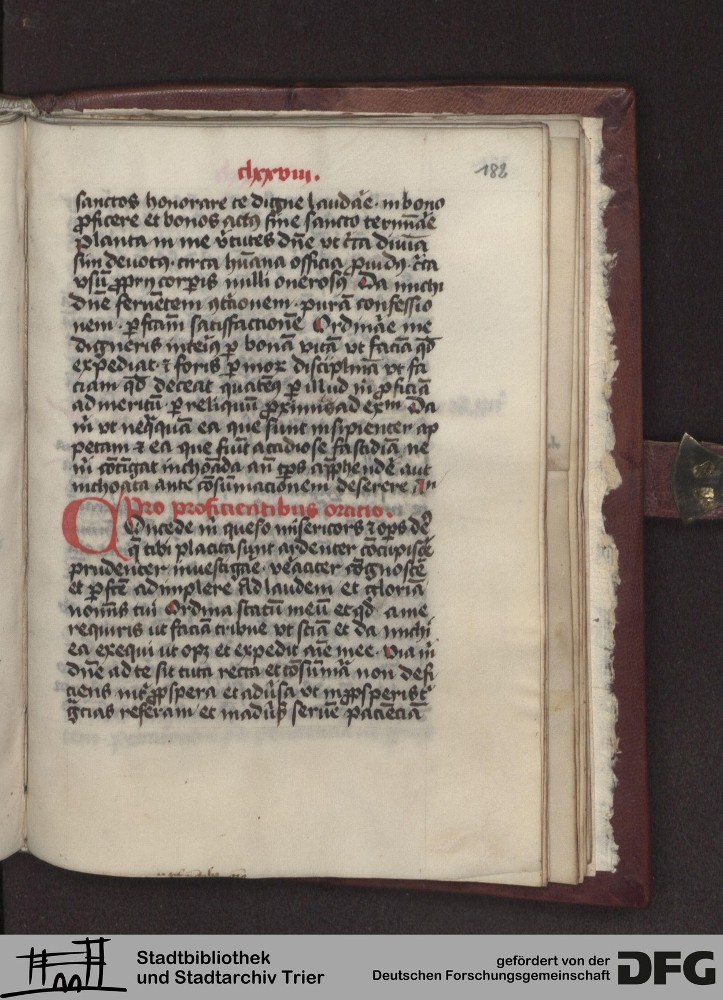 clxxviii.
182
sanctos honorare te digne laudāe. in bono
ꝓficere et bonos actꝰ fine sancto termīāe
Planta in me v̄tutes dn̄e vt c̄ca diuīa
sim deuotꝰ. circa hūana officia ꝓuidꝰ. c̄ca
vsū ꝓprij corꝑis nulli onerosꝰ Da michi
dn̄e feruētem ꝯtⁱcionem. purā confessio
nem. ꝑfctām satisfactionē Ordināe me
digneris inteⁱꝰ ꝑ bonā vitā vt faciā qd̄
expediat ⁊ foris ꝑ mox disciplinā vt fa
ciam qd̄ deceat quatēꝰ ꝑ illud m̄ ꝓficiā
ad meritū. ꝑ reliquū ꝓximis ad exm̄ Da
m̄ vt neq̄quā ea que sunt insipienter ap
petam ⁊ ea que fiūt accidiose fastidiā ne
m̄ cōtīgat inchoāda an̄ tꝑs apphendē aut
inchoata ante cōsūmacionem deserere
Pro proficientibus oracio.
Concede m̄ queso misericors ⁊ oꝑs dē
q̄ tibi placita sunt ardenter cōcupiscē
prudenter inuestigāe. veācitēr cōgnoscē
et ꝑfctē adimplere Ad laudem et gloriā
nomīs tui Ordina statū meū et qd̄ a me
requiris ut faciā tribue vt sciā et da michi
ea exequi ut opꝫ et expedit aīe mee. Via m̄
dn̄e ad te sit tuta recta et cōsūmā non defi
ciens int̄ ꝓspera et adūsa vt in ꝓsperis tⁱ
gr̄cias referam et in adūsꝭ seruē pacienciā
Stadtbibliothek
und Stadtarchiv Trier
gefördert von der
Deutschen Forschungsgemeinschaft
DFG